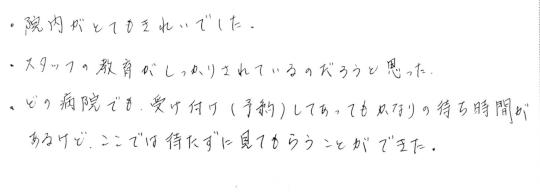 ・院内がとてもきれいでした。
・スタッフの教育がしっかりされているのだろうと思った。
・どの病院でも、受け付け(予約)してあってもかなりの待ち時間が
あるけど、ここでは待たずに見てもらうことができた。